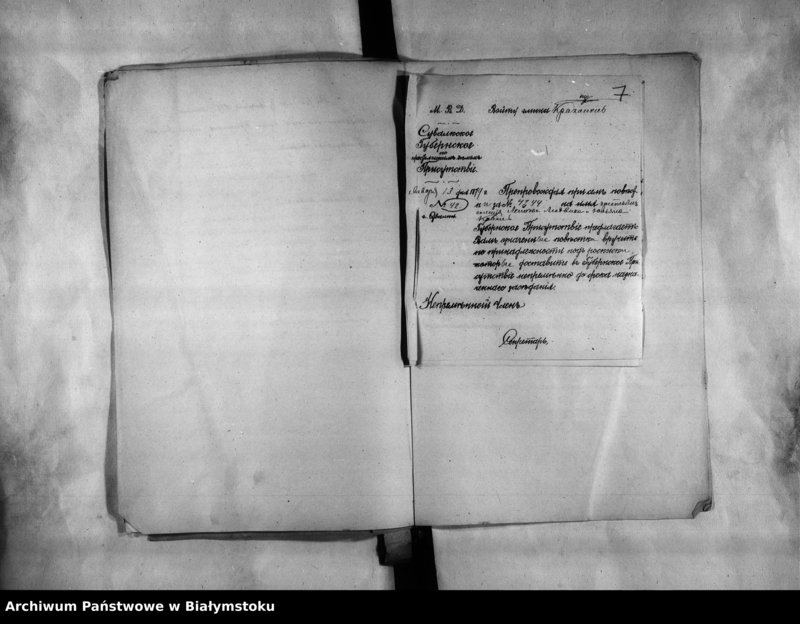 7
М. В. Д.
Войту гмины
Сувалкское
Губернское
по крестьянскимъ дѣламъ
Присутствіе.
Января 13 дня
№ 42
г. Сувалки.
Препровождая при семъ повѣст
ки за № 4244 на имя
Губернское Присутствіе предлагаетъ
Вамъ означенные повѣстки вручить
по принадлежности подъ росписки
которые доставить въ Губернское При
сутствіе непремѣнно до срока назна
ченнаго засѣданія.
Непремѣнный Членъ
Секретарь,
Archiwum Państwowe w Białymstoku